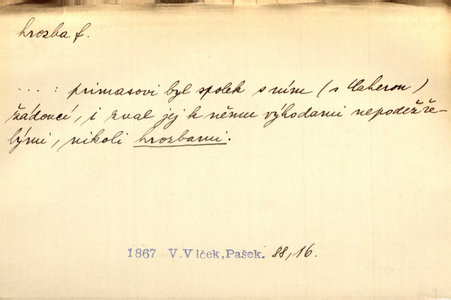 hrozba f.
... : primasovi byl spolek s ním (s Caherem)
žádoucí, i zval jej k němu výhodami nepodeZře-
lými, nikoli hrozbami.
1867 V.Vlček, Pašek. 88,16.